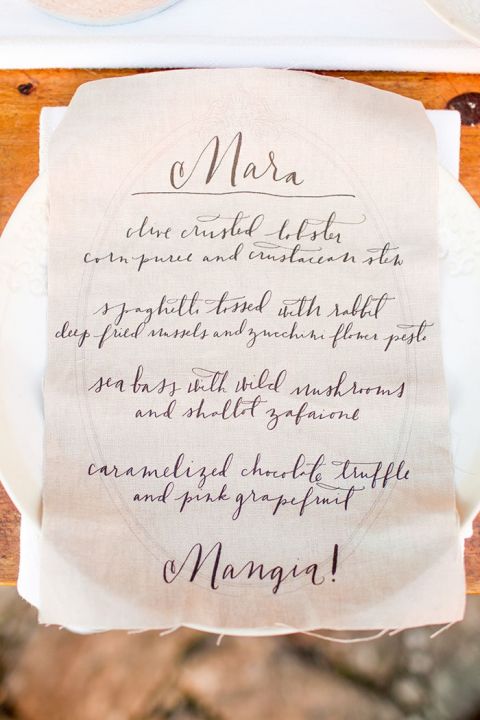 Mara
olive crusted lobster
corn puree and crustacean stew
spaghetti tossed with rabbit
deep fried mussels and zucchini flower pesto
sea bass with wild mushrooms
and shallot zafaione
caramelized chocolate truffle
and pink grapefruit
Mangia!